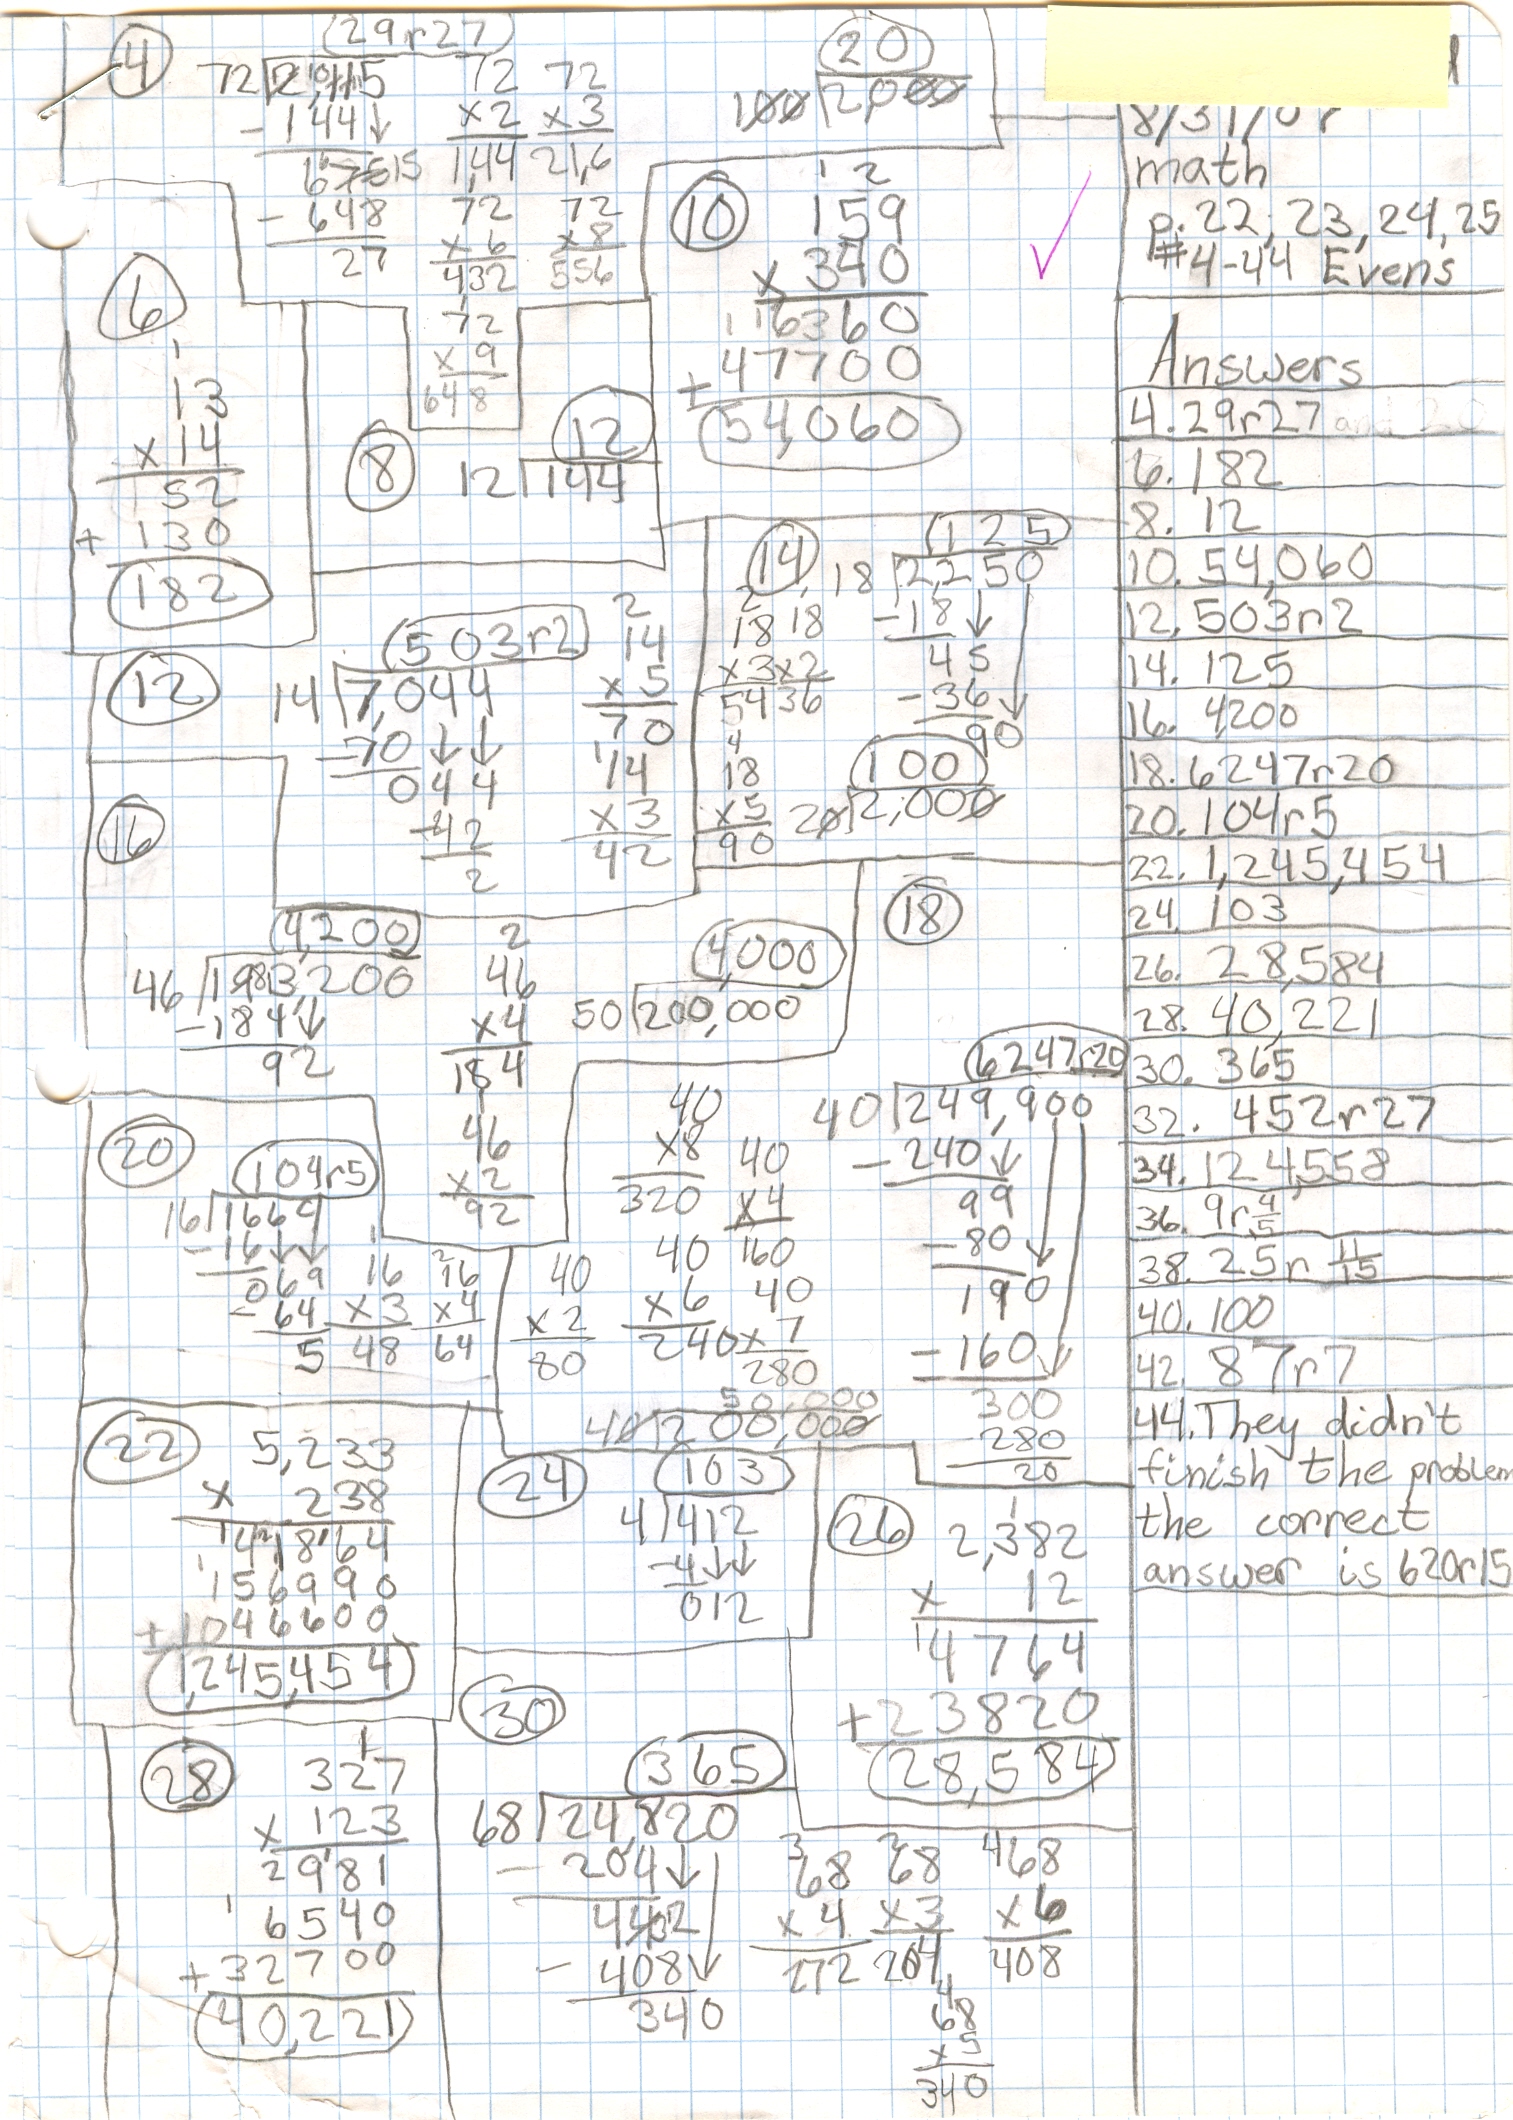 4
29r27
72 2,115
-144
67515
-648
27
72
x2
144
72
x3
21,6
72
x6
432
72
x8
556
72
x9
648
20
100 2,000
8/31/0
math
p. 22, 23, 24, 25
#4-44 Evens
6
1
13
x 14
52
+ 130
182
8
12
12 144
10
1 2
159
x 340
6360
+ 47700
54,060
12
503r2
14 7,044
-70
044
-42
2
2
14
x 5
70
1
14
x 3
42
14
125
18 2,250
-18
45
-36
90
2
18
x3
54
18
x2
36
4
18
x5
90
100
20 2,000
16
4,200
46 193,200
-184
92
2
46
x4
184
1
46
x2
92
4,000
50 200,000
18
6247r20
40 249,900
-240
99
-80
190
-160
300
-280
20
40
x8
320
40
x4
160
40
x2
80
40
x6
240
40
x7
280
50,000
40 200,000
20
104r5
16 1669
-16
069
-64
5
1
16
x3
48
2
16
x4
64
22
5,233
x 238
41864
156990
+1046600
1,245,454
24
103
4 412
-4
012
26
1
2,382
x 12
4764
+23820
28,584
28
327
x 123
2981
6540
+32700
40,221
30
365
68 24,820
-204
442
-408
340
3
68
x4
272
2
68
x3
204
4
68
x6
408
4
68
x5
340
Answers
4. 29r27 and 20
6. 182
8. 12
10. 54,060
12. 503r2
14. 125
16. 4200
18. 6247r20
20. 104r5
22. 1,245,454
24. 103
26. 28,584
28. 40,221
30. 365
32. 452r27
34. 124,558
36. 9r 4/5
38. 25r 11/15
40. 100
42. 87r7
44. They didn't
finish the problem
the correct
answer is 620r15